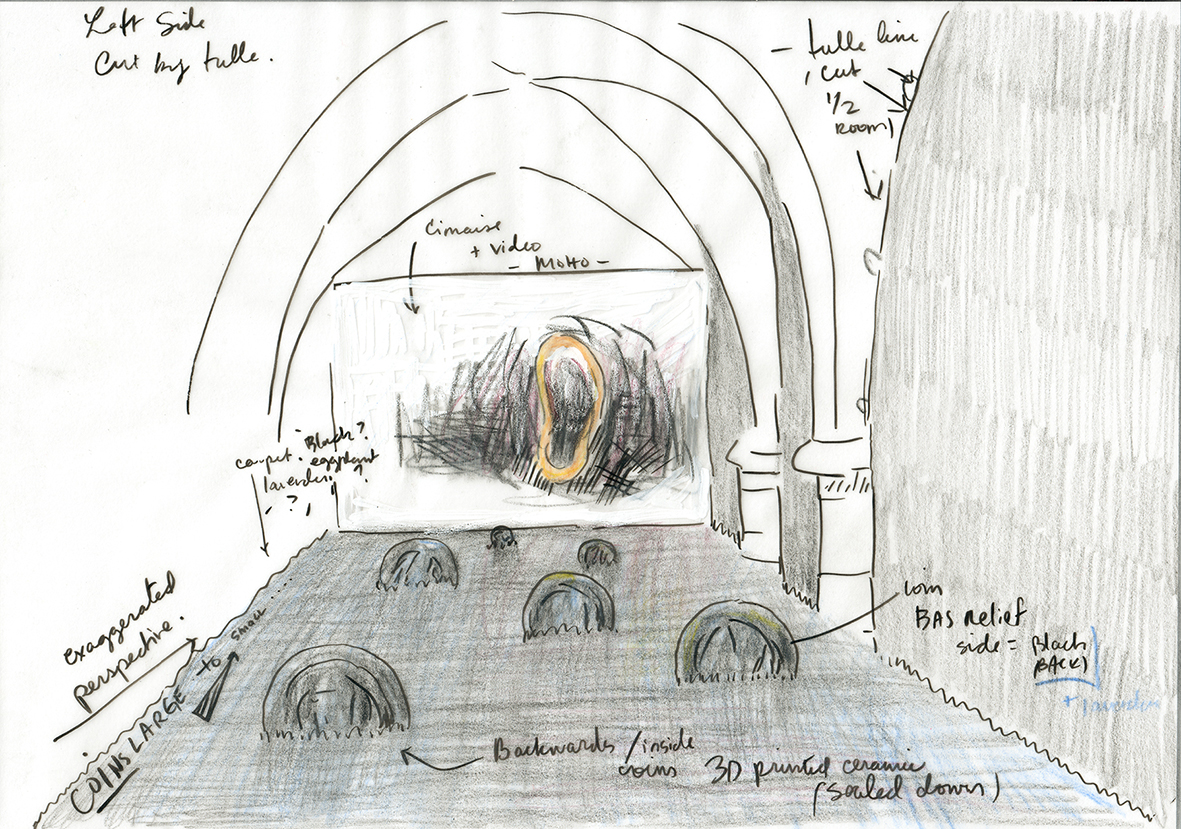 Left Side
Cut by tulle.
- tulle line
, cut
1/2
ROOM)
Cimaise
+ video
- MOHO -
carpet. Black?
eggplant
lavender. ?
?
exaggerated
perspective.
COINS LARGE to small
coin
BAS Relief
side = Black
BACK)
+ lavender
Backwards / inside
coins 3D printed ceramic
(Scaled down)